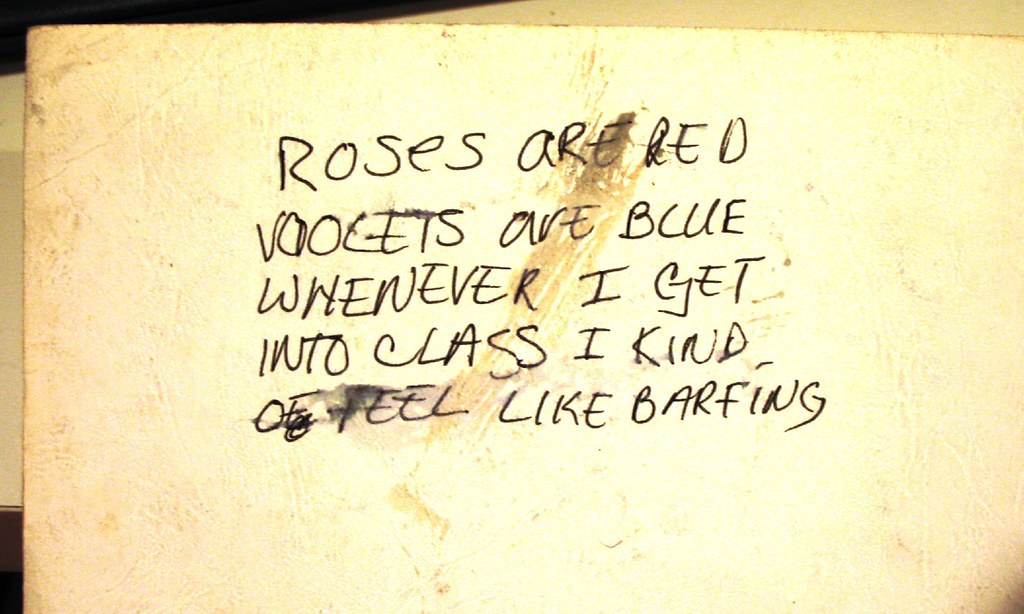 ROSES ARE RED
VOOLETS ARE BLUE
WHENEVER I GET
INTO CLASS I KIND
OF FEEL LIKE BARFING